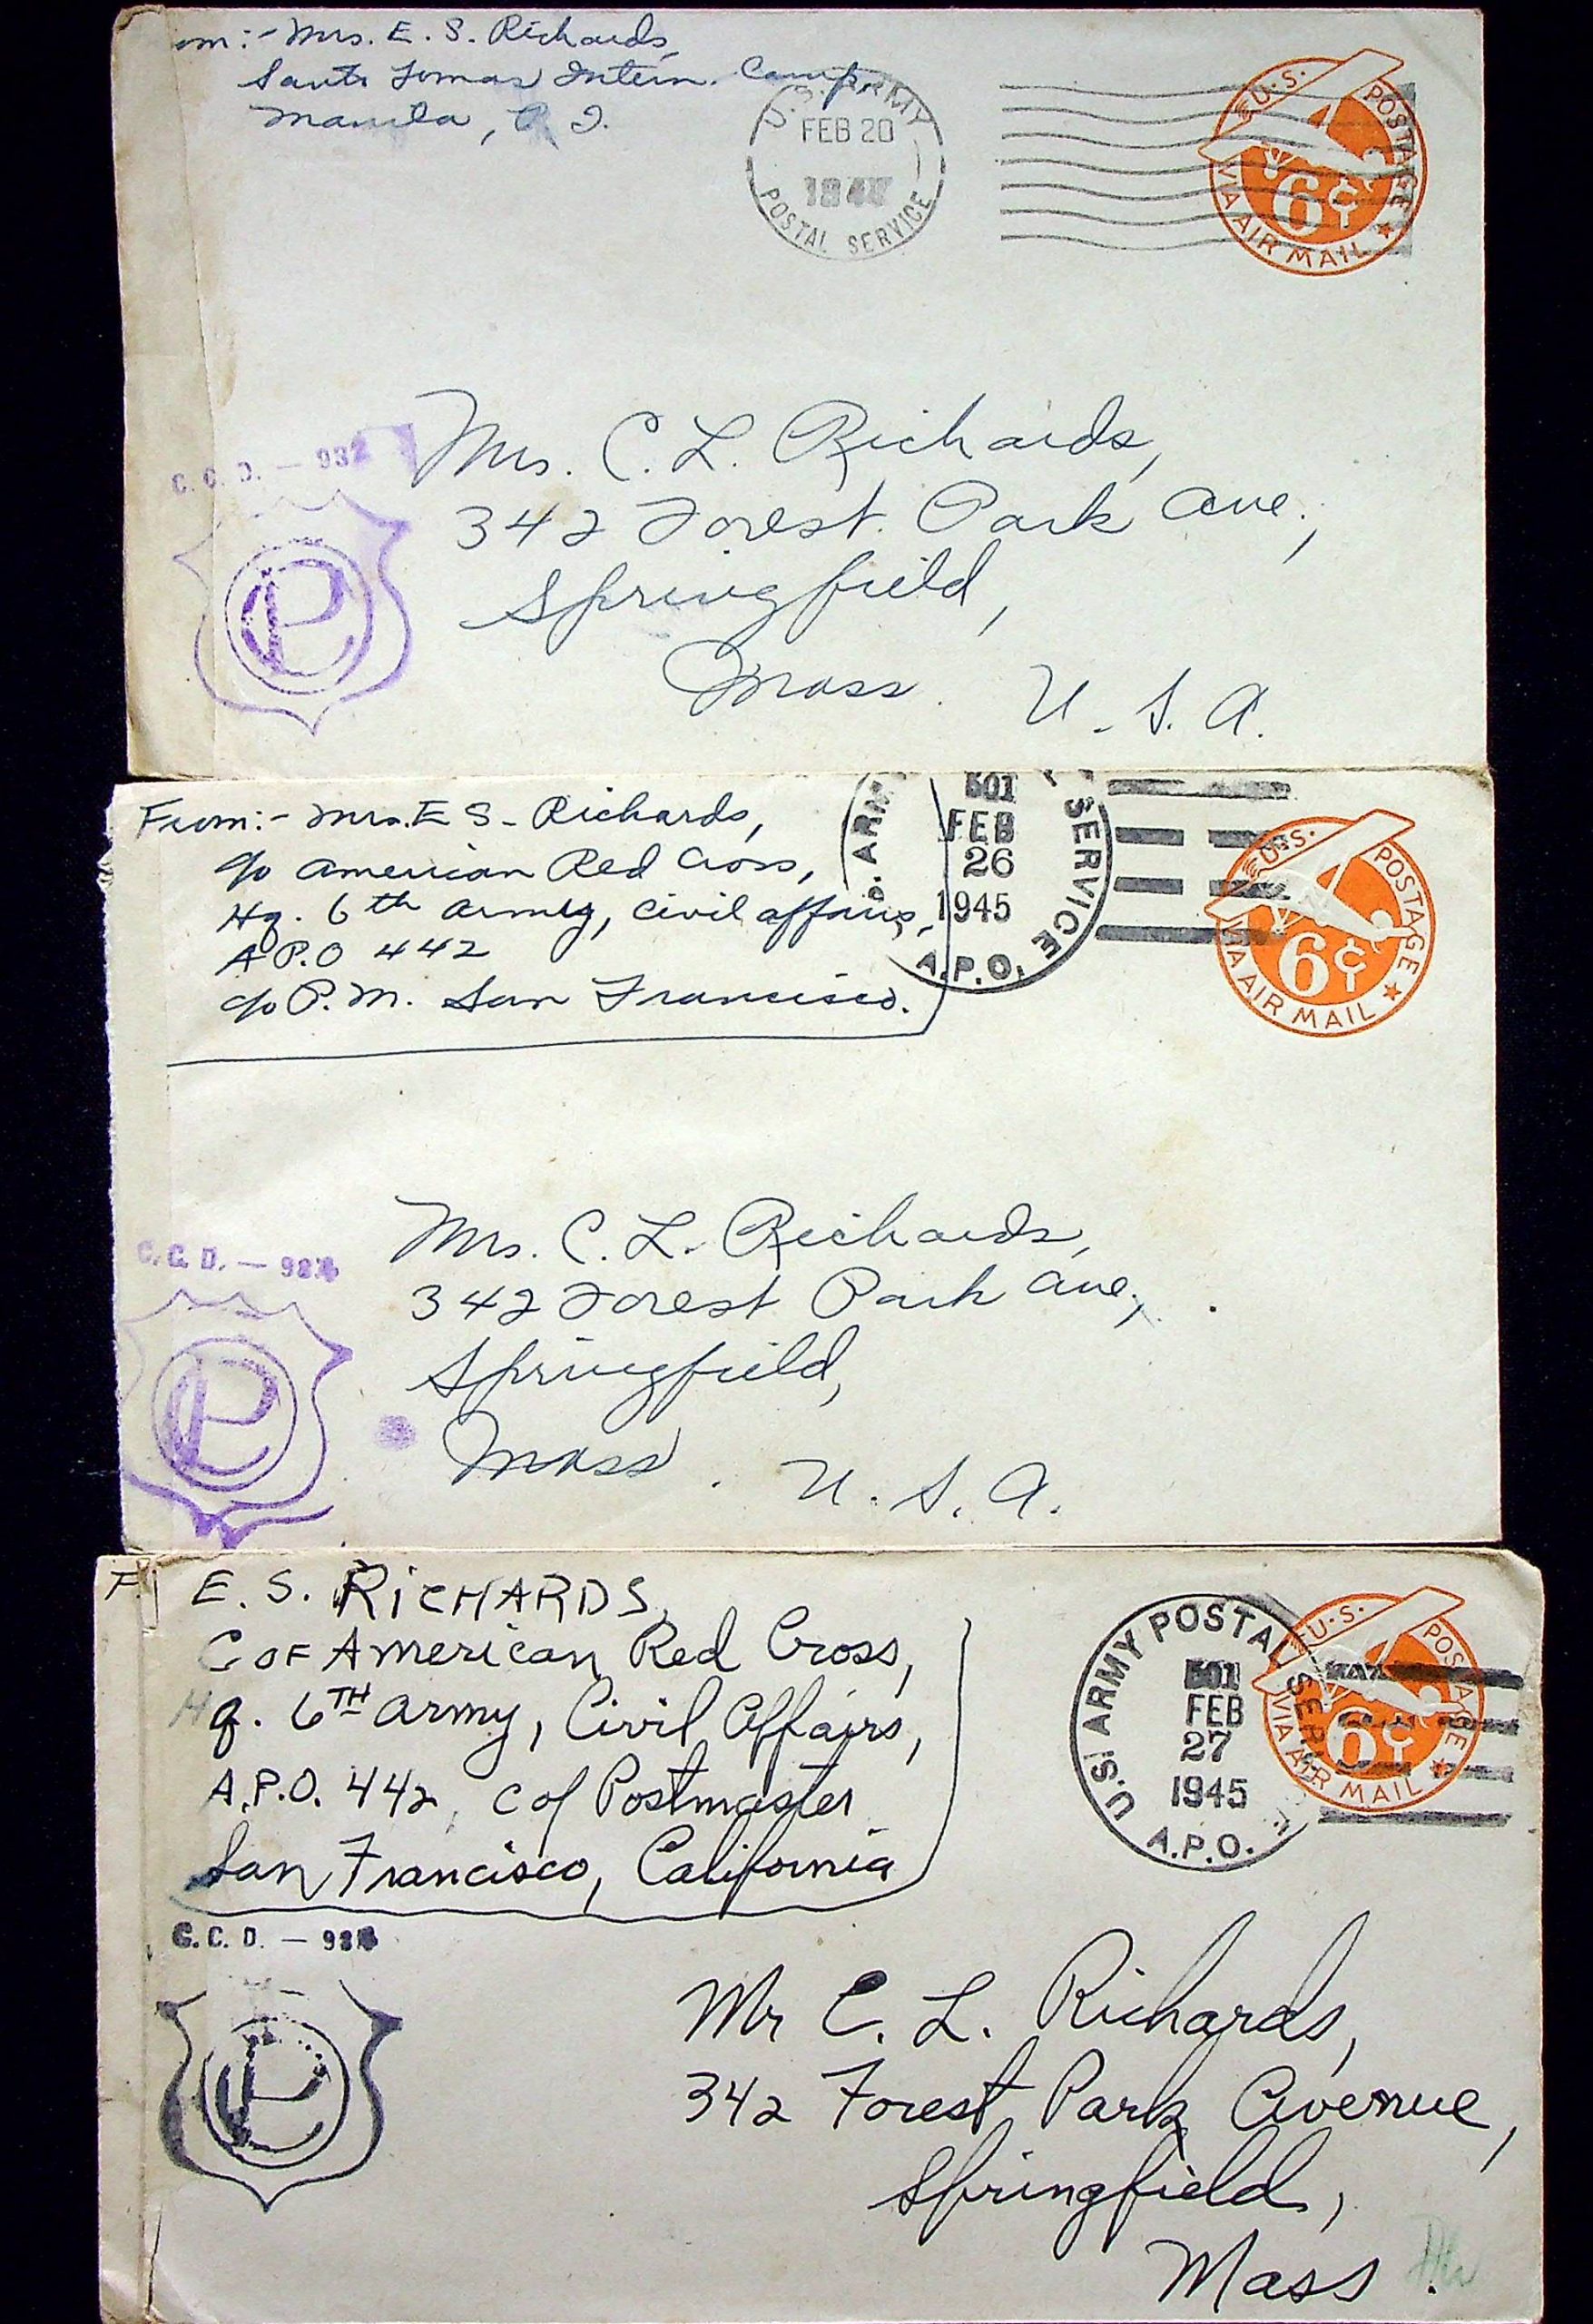 om:- Mrs. E. S. Richards,
Santo Tomas Intern. Camp
Manila, P. I.
U.S. ARMY
FEB 20
POSTAL SERVICE
U.S. POSTAGE
6¢
VIA AIR MAIL
C. C. D. — 932
Mrs. C. L. Richards,
342 Forest Park Ave.,
Springfield,
Mass. U. S. A.
From:- Mrs. E S. Richards,
c/o American Red Cross,
Hq. 6th Army, Civil Affairs,
A P.O 442
c/o P. M. San Francisco.
. ARMY
SERVICE
501
FEB
26
1945
A.P.O.
U.S. POSTAGE
6¢
VIA AIR MAIL
C. C. D. —
Mrs. C. L. Richards,
342 Forest Park Ave.,
Springfield,
Mass. U. S. A.
F. E. S. RICHARDS,
C OF American Red Cross,
Hq. 6TH Army, Civil Affairs,
A.P.O. 442, c of Postmaster
San Francisco, California
U.S. ARMY POSTAL SER
501
FEB
27
1945
A.P.O.
U.S. POSTAGE
6¢
VIA AIR MAIL
C. C. D. —
Mr C. L. Richards,
342 Forest Park Avenue,
Springfield,
Mass.